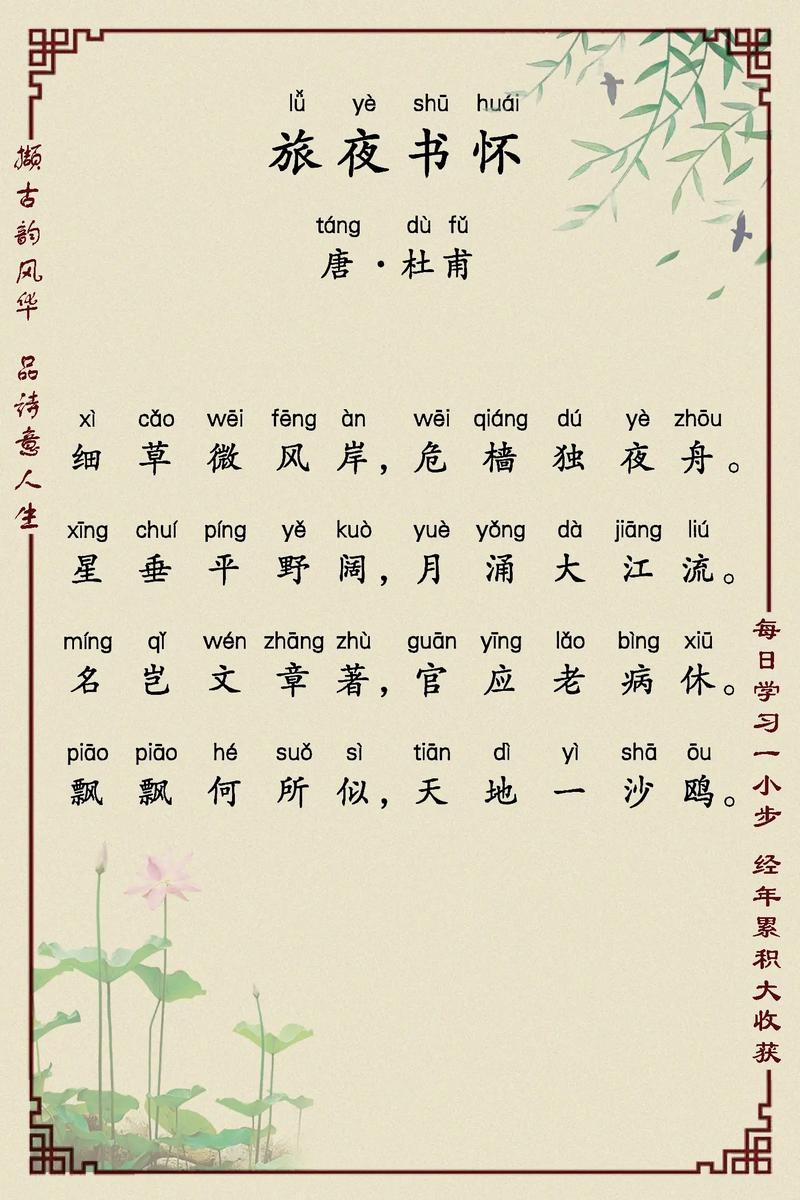 lǚ yè shū huái
旅夜书怀
táng dù fǔ
唐·杜甫
xì cǎo wēi fēng àn wēi qiáng dú yè zhōu
细草微风岸，危樯独夜舟。
xīng chuí píng yě kuò yuè yǒng dà jiāng liú
星垂平野阔，月涌大江流。
míng qǐ wén zhāng zhù guān yīng lǎo bìng xiū
名岂文章著，官应老病休。
piāo piāo hé suǒ sì tiān dì yì shā ōu
飘飘何所似，天地一沙鸥。
撷古韵风华 品诗意人生
每日学习一小步 经年累积大收获